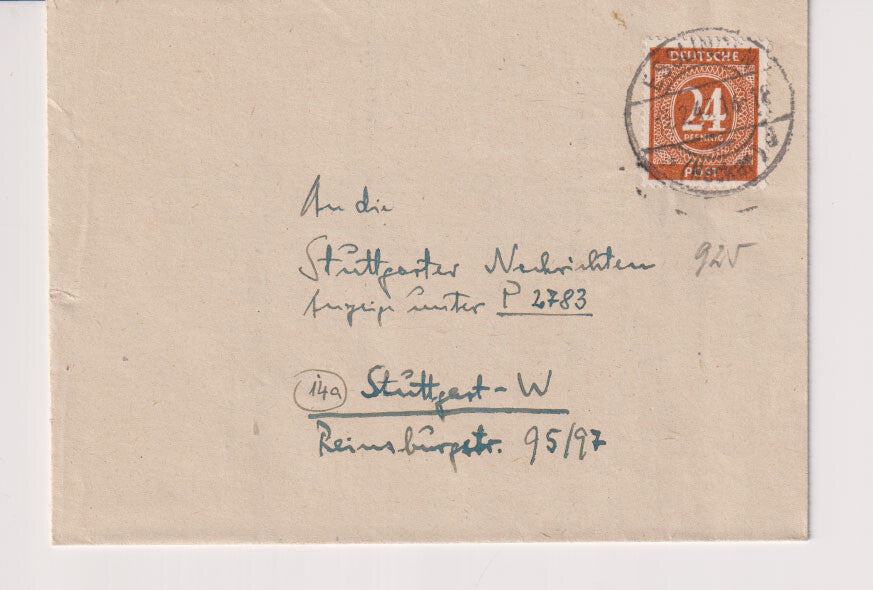 DEUTSCHE
24
PFENNIG
POST
An die
Stuttgarter Nachrichten
925
Anzeige unter P 2783
14a Stuttgart-W
Reinsburgstr. 95/97